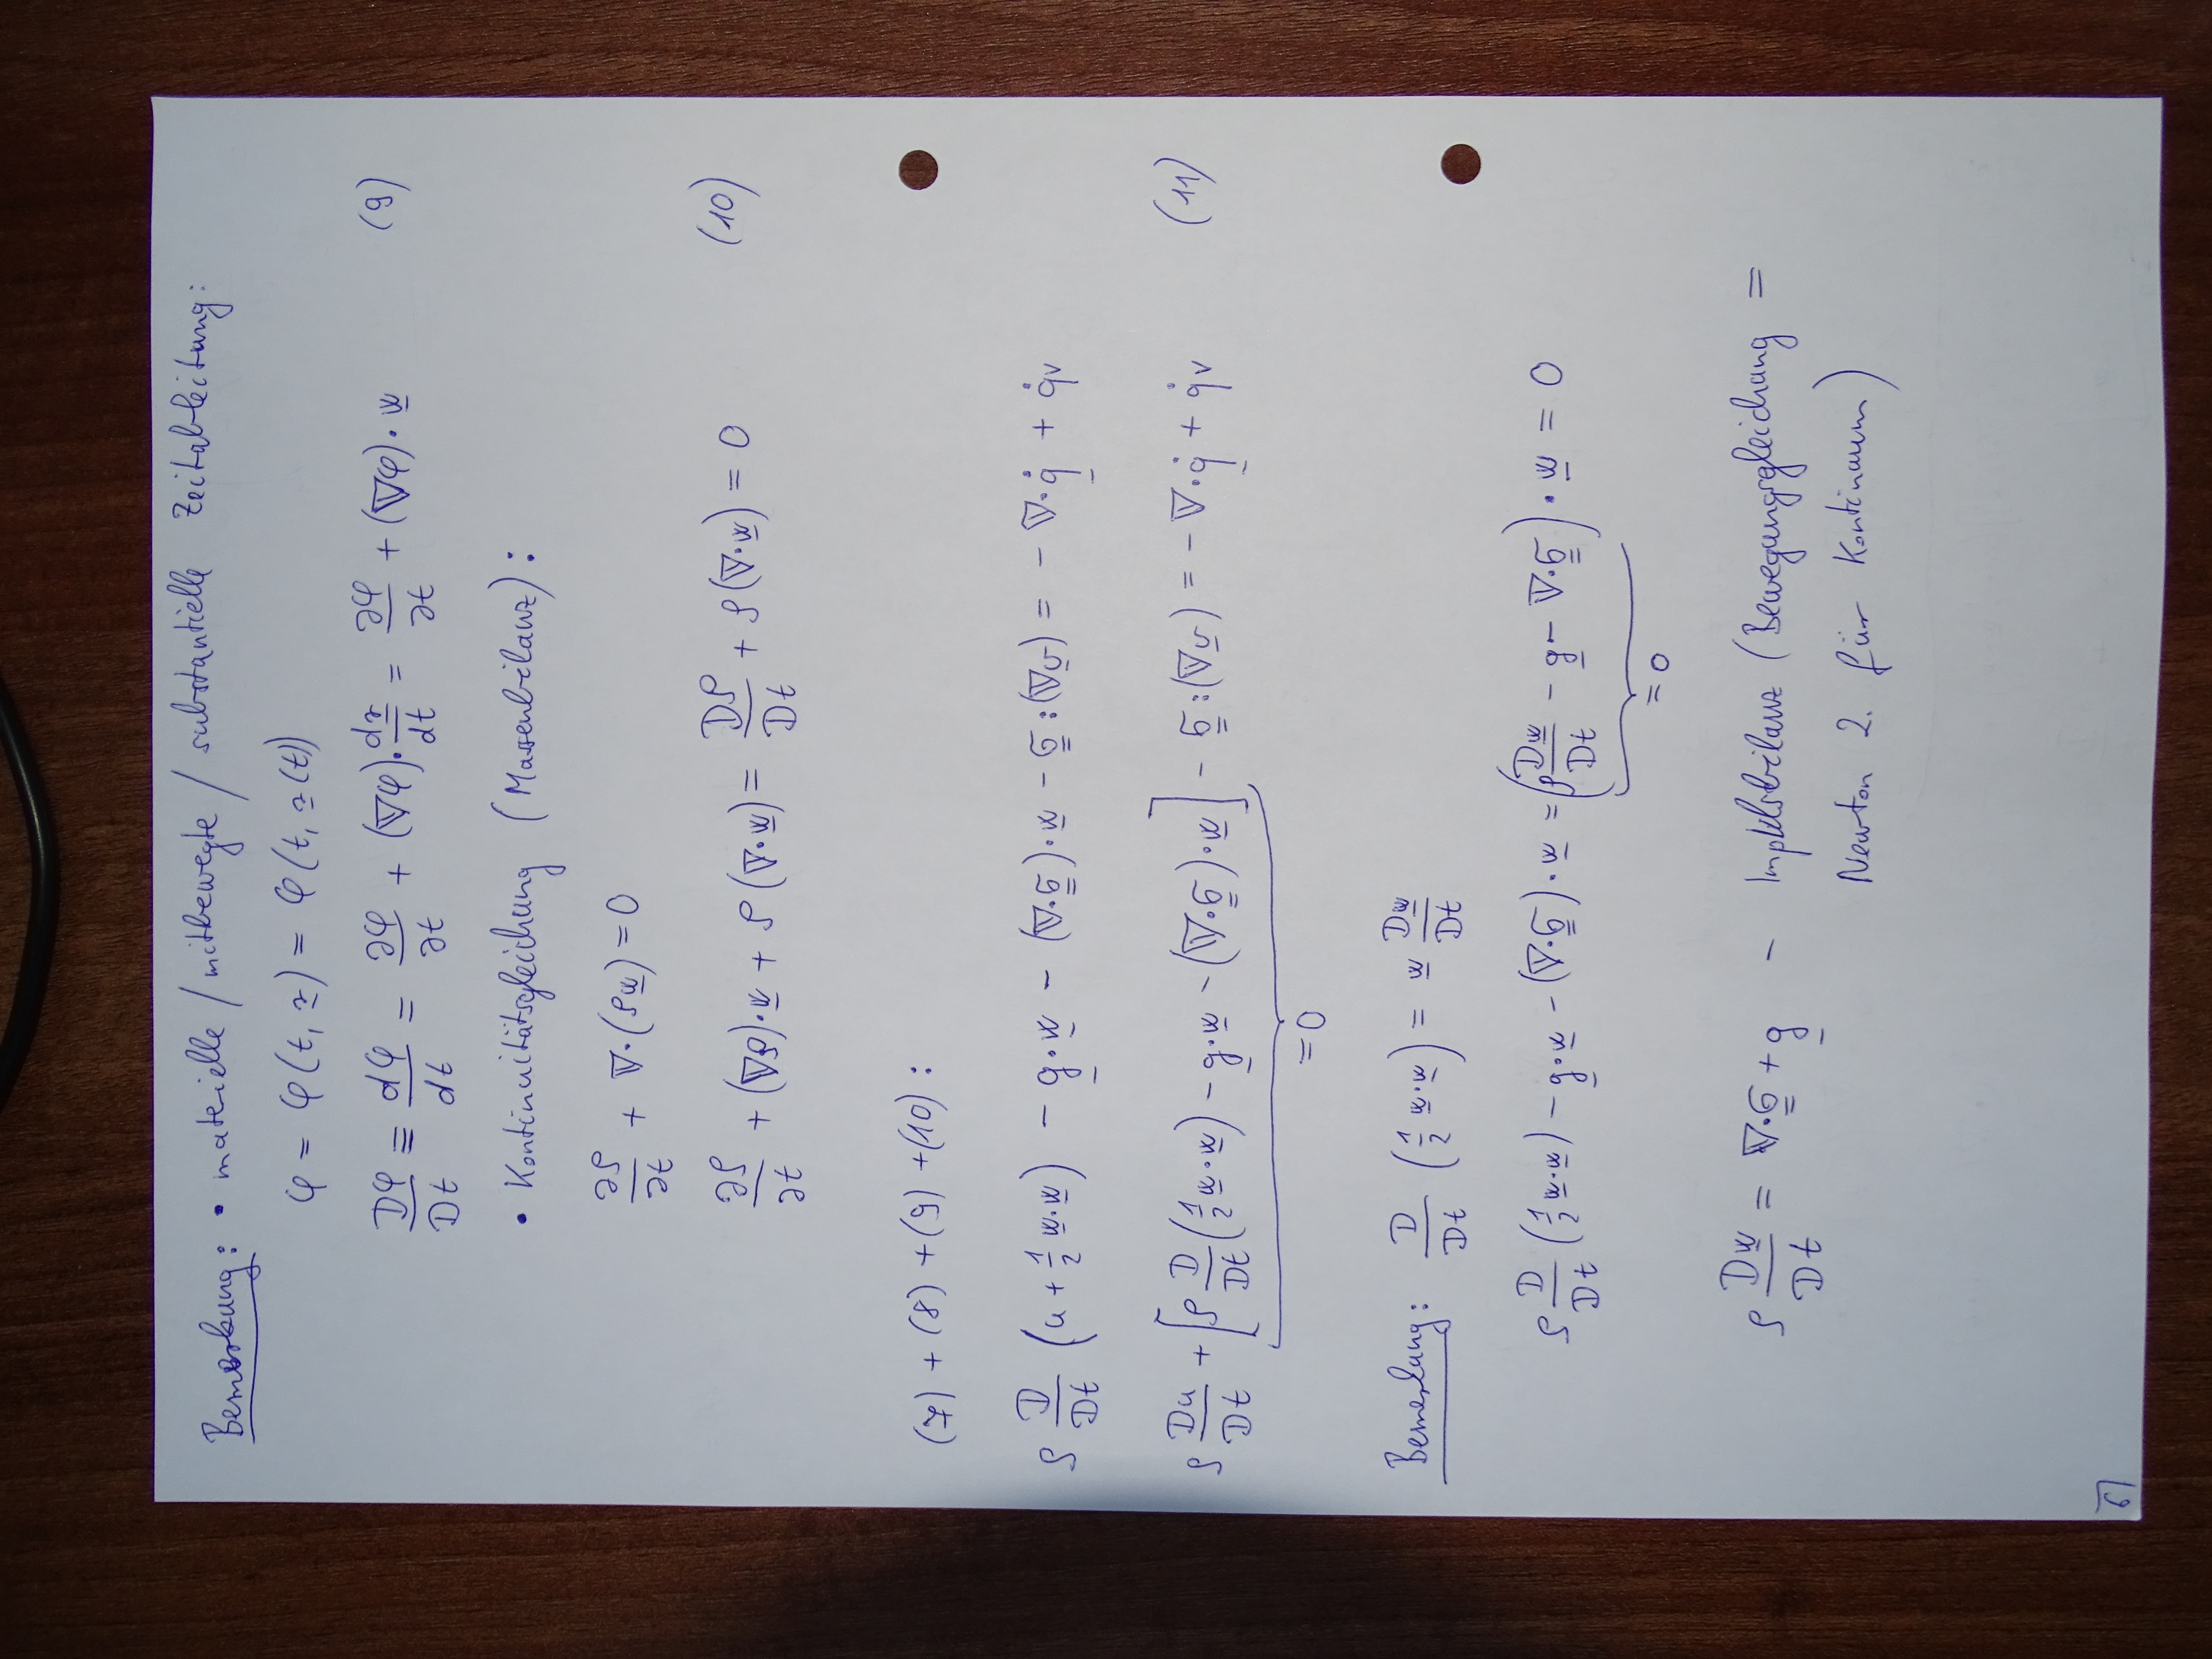 Bemerkung: • materielle / mitbewegte / substantielle Zeitableitung:
φ = φ(t, r̲) = φ(t, r̲(t))
Dφ/Dt ≡ dφ/dt = ∂φ/∂t + (∇φ)·dr̲/dt = ∂φ/∂t + (∇φ)·w̲ (9)
• Kontinuitätsgleichung (Massenbilanz):
∂ρ/∂t + ∇·(ρw̲) = 0
∂ρ/∂t + (∇ρ)·w̲ + ρ(∇·w̲) = Dρ/Dt + ρ(∇·w̲) = 0 (10)
(7) + (8) + (9) + (10):
ρ D/Dt (u + 1/2 w̲·w̲) - g̲·w̲ - (∇·σ̳)·w̲ - σ̳:(∇v̲) = - ∇·q̲̇ + q̇v
ρ Du/Dt + [ρ D/Dt (1/2 w̲·w̲) - g̲·w̲ - (∇·σ̳)·w̲] - σ̳:(∇v̲) = - ∇·q̲̇ + q̇v (11)
= 0
Bemerkung: D/Dt (1/2 w̲·w̲) = w̲ Dw̲/Dt
ρ D/Dt (1/2 w̲·w̲) - g̲·w̲ - (∇·σ̳)·w̲ = (ρ Dw̲/Dt - g̲ - ∇·σ̳)·w̲ = 0
= 0
ρ Dw̲/Dt = ∇·σ̳ + g̲ - Impulsbilanz (Bewegungsgleichung =
Newton 2. für Kontinuum)
6